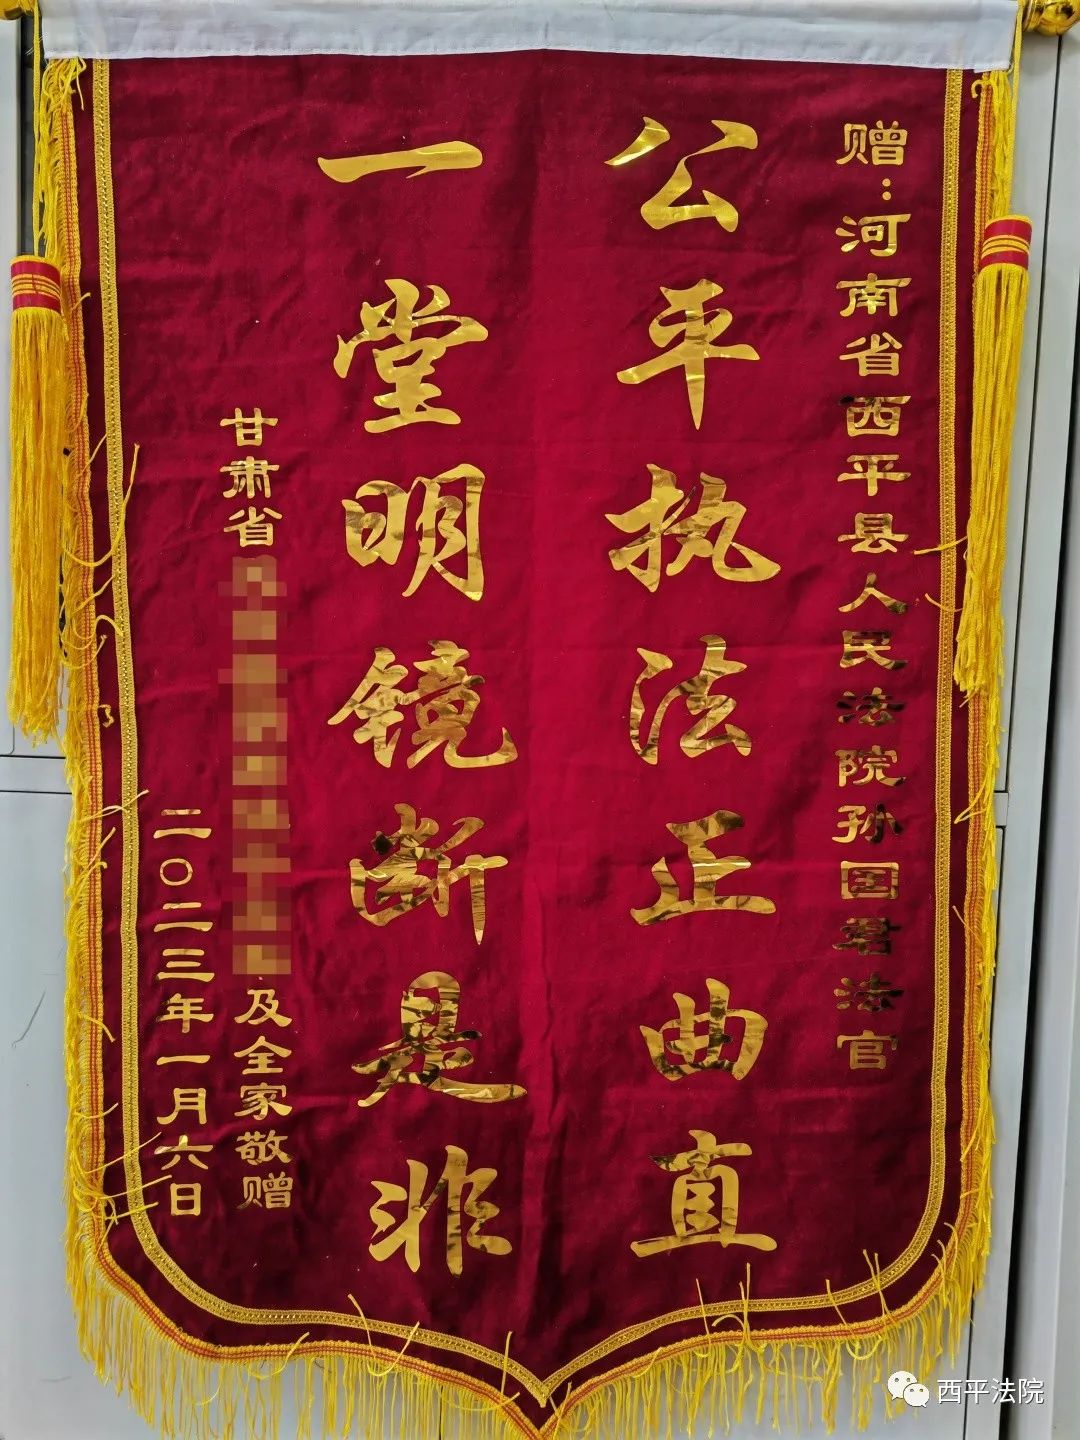 赠：河南省西平县人民法院孙国君法官
公平执法正曲直
一堂明镜断是非
甘肃省
及全家敬赠
二〇二三年一月六日
西平法院